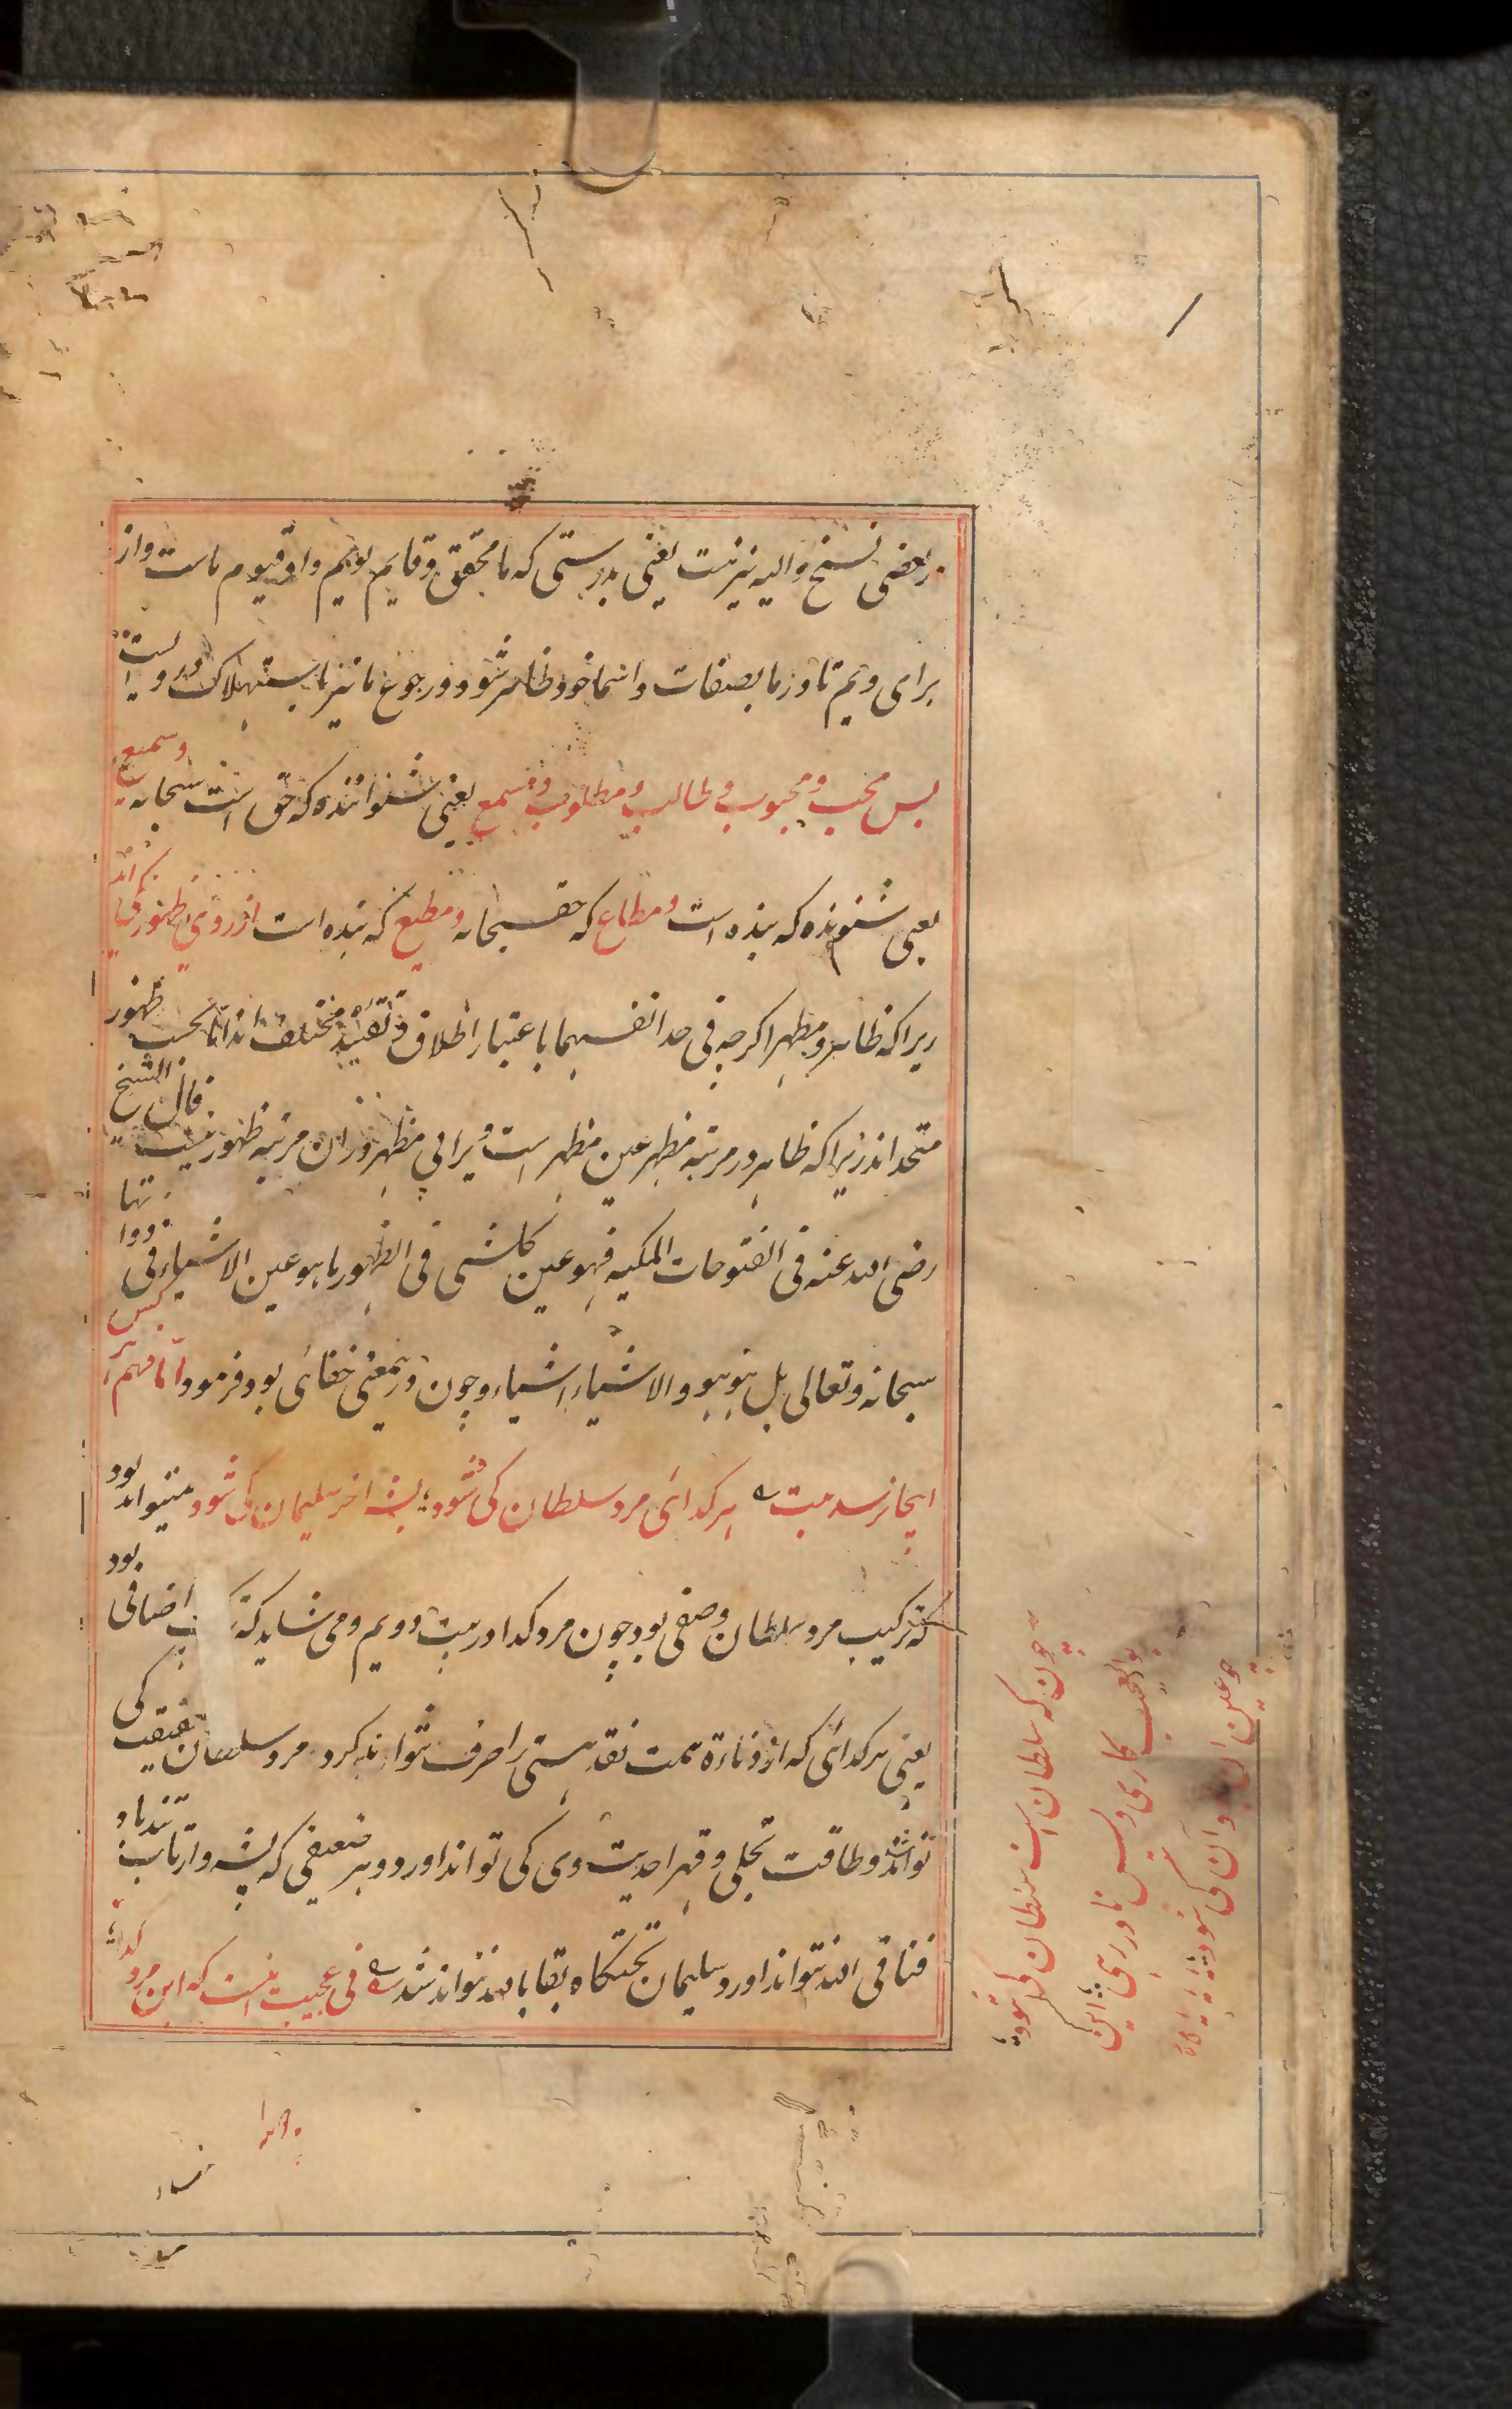 در بعضی نسخ و الیه نیز نیست یعنی بدرستی که ما محقق و قایم بویم و او قیوم ماست و از
برای ویم تا در ما بصفات و اسما خود ظاهر شود و رجوع ما نیز باستهلاک در وست
بس محب و محبوب و طالب و مطلوب و مسمع یعنی شنواننده که حق است سبحانه و سمیع
یعنی شنونده که بنده است و مطاع که حق سبحانه و مطیع که بنده است از روی ظهور یکی اند
زیرا که ظاهر و مظهر اکرچه فی حد انفسهما باعتبار اطلاق و تقیید مختلف اند اما بحسب ظهور
متحد اند زیرا که ظاهر در مرتبه مظهر عین مظهر است و یرا بی مظهر در ان مرتبه ظهور نیست قال الشیخ
رضی الله عنه فی الفتوحات المکیه فهو عین کلشی فی الظهور ما هو عین الاشیاء فی ذواتها
سبحانه و تعالی بل هو هو و الاشیاء اشیاء و چون درینمعنی خفائی بود فرمود اما فهم هرکس
اینجا نرسد بیت هر کدائی مرد سلطان کی شود بشه اخر سلیمان کی شود میتواند بود
که ترکیب مرد سلطان وصفی بود چون مرد کدا در بیت دویم و می شاید که اضافی بود
یعنی هر کدائی که از دناءة همت نقد هستی را صرف نتواند کرد مرد سلطان حقیقت کی
تواند شد و طاقت تجلی و قهر احدیت وی کی تواند اورد و هر ضعیفی که بشه وار تاب تندباد
فنا فی الله نتواند اورد سلیمان تختکاه بقا بالله نتواند شد نی عجیب اینست که این مرد کدا
چون که سلطان است سلطان کی شود
بوالعجب کاری و بس نادر رهی این
چو عین ان بود آن کی شود